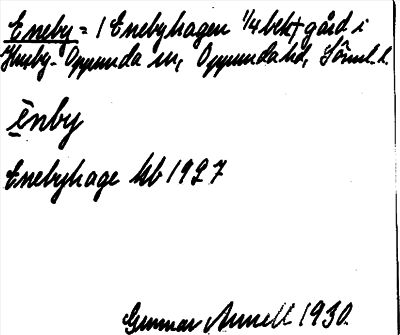 Eneby = / Enebyhagen 1/4 bekt gård i
Husby-Oppunda sn, Oppunda hd, Sörml. l.
ēnby
Enebyhage kb 1927
Gunnar Annell 1930.